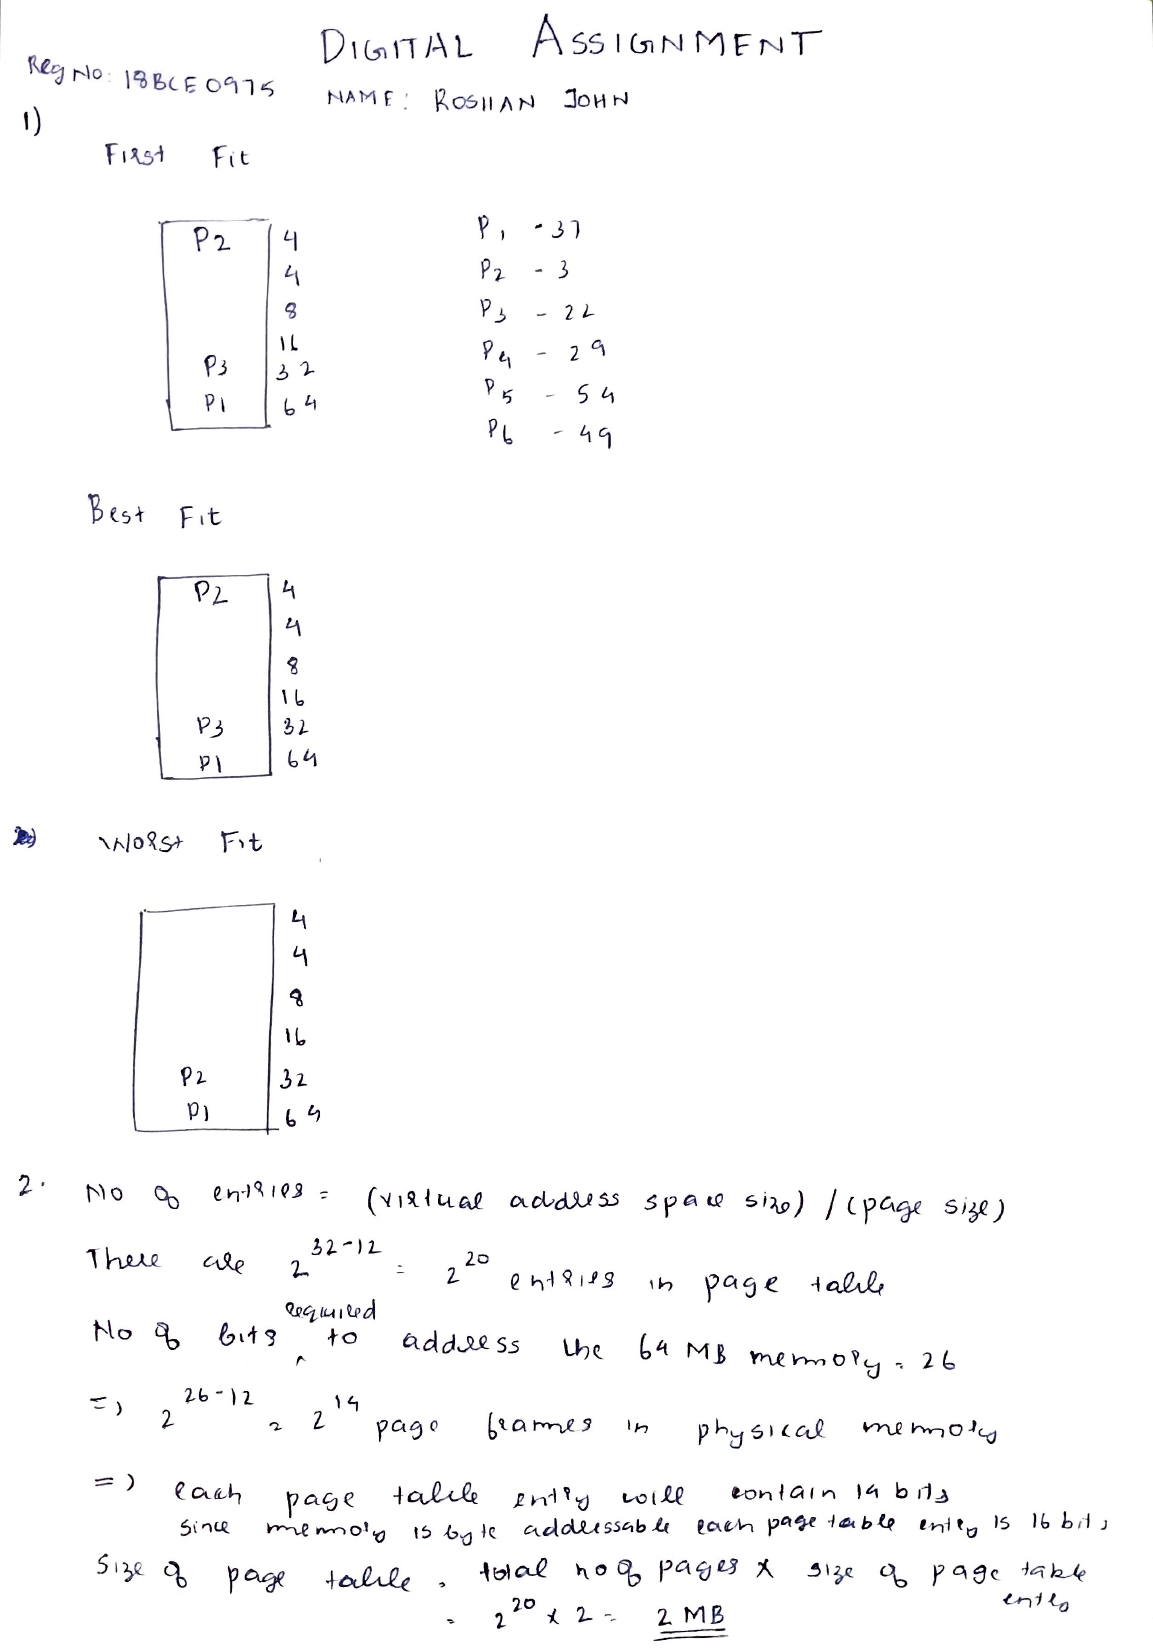 DIGITAL ASSIGNMENT
Reg No: 18BCE0975
NAME: ROSHAN JOHN
1)
First Fit
P2 4
4
8
16
P3 32
P1 64
P1 - 37
P2 - 3
P3 - 22
P4 - 29
P5 - 54
P6 - 49
Best Fit
P2 4
4
8
16
P3 32
P1 64
Worst Fit
4
4
8
16
P2 32
P1 64
2. No of entries = (virtual address space size) / (page size)
There are 2^32-12 = 2^20 entries in page table
No of bits required to address the 64 MB memory = 26
=) 2^26-12 = 2^14 page frames in physical memory
=) each page table entry will contain 14 bits
since memory is byte addressable each page table entry is 16 bits
Size of page table = total no of pages x size of page table entry
= 2^20 x 2 = 2 MB